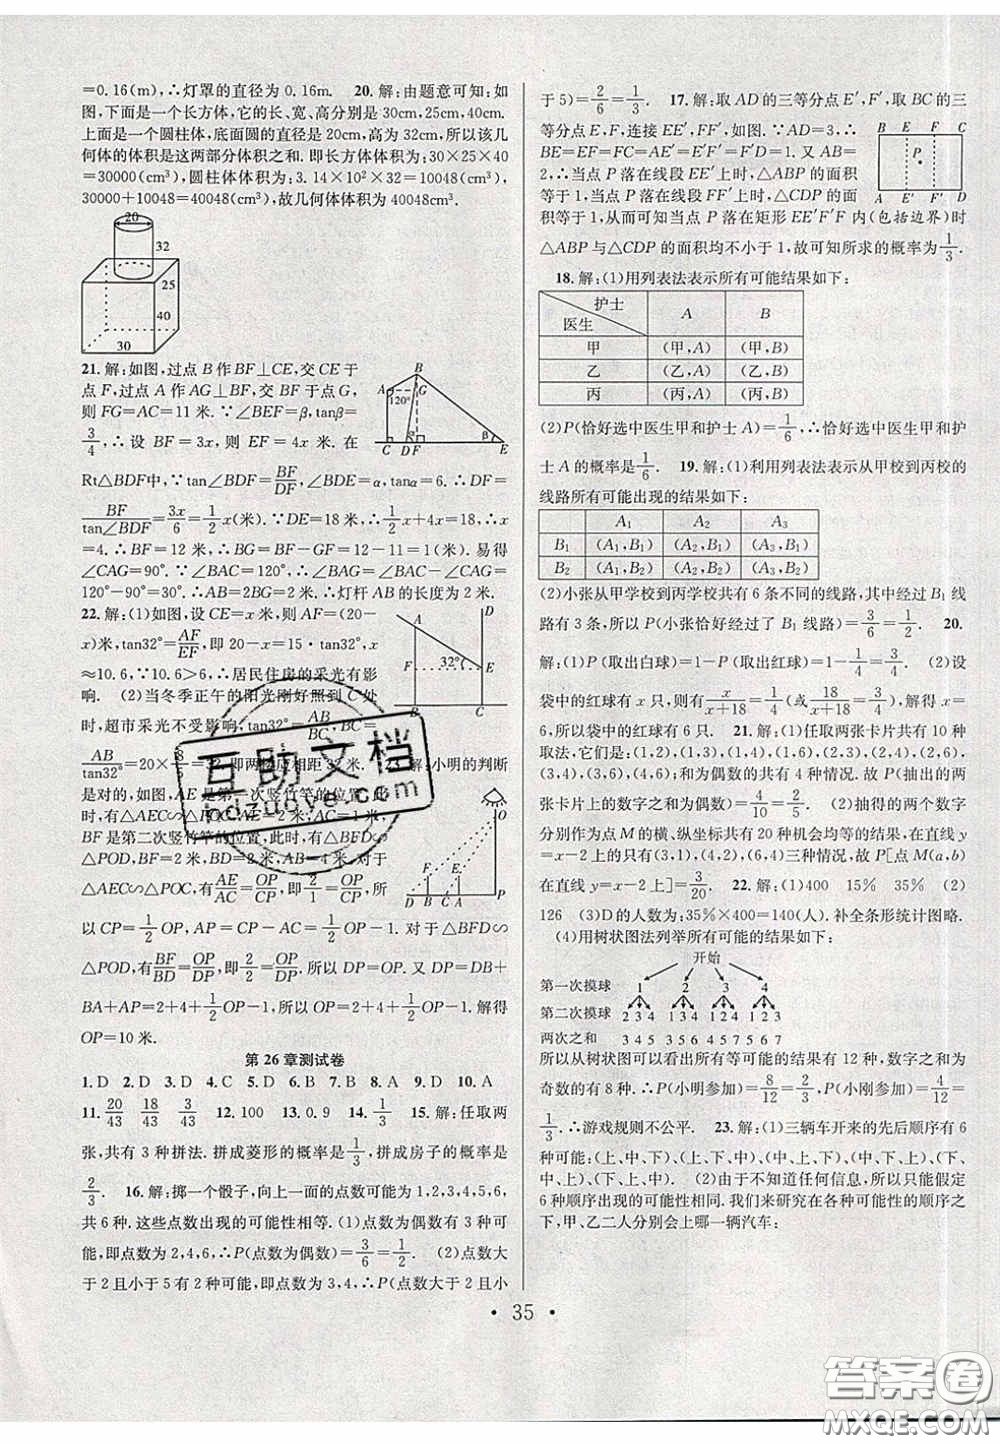 =0.16(m),∴灯罩的直径为 0.16m. 20. 解:由题意可知:如
图,下面是一个长方体,它的长、宽、高分别是 30cm,25cm,40cm.
上面是一个圆柱体,底面圆的直径是 20cm,高为 32cm,所以该几
何体的体积是这两部分体积之和. 即长方体体积为:30×25×40
=30000(cm³),圆柱体体积为:3.14×10²×32=10048(cm³),
30000+10048=40048(cm³),故几何体体积为 40048cm³.
20
32
25
40
30
21. 解:如图,过点 B 作 BF⊥CE,交 CE 于
点 F,过点 A 作 AG⊥BF,交 BF 于点 G,
则 FG=AC=11 米. ∵∠BEF=β,tanβ=
3/4,∴设 BF=3x,则 EF=4x 米. 在
B
A
G
120°
α
β
C D F E
Rt△BDF中,∵tan∠BDF=BF/DF,∠BDE=α,tanα=6. ∴DF=
BF/tan∠BDF=3x/6=1/2x(米). ∵DE=18 米,∴1/2x+4x=18,∴x
=4. ∴BF=12 米,∴BG=BF-GF=12-11=1 米. 易得
∠CAG=90°. ∵∠BAC=120°,∴∠BAG=∠BAC-∠CAG=
120°-90°=30°. ∴AB=2BG=2 米. ∴灯杆 AB 的长度为 2 米.
22. 解:(1)如图,设 CE=x 米,则 AF=(20-
x)米,tan32°=AF/EF,即 20-x=15·tan32°,x
≈10.6,∵10.6>6,∴居民住房的采光有影
响. (2)当冬季正午的阳光刚好照到 C 处
时,超市采光不受影响,tan32°=AB/BC,BC=
A
D
F
32°
E
B C
AB/tan32°=20×8/5=32,即两楼应相距 32 米. 23. 解:小明的判断
是对的,如图,AE 是第一次竖竹竿的位置,此
时,有△AEC∽△OPC,AE=2 米. 
BF 是第二次竖竹竿的位置,此时,有△BFD∽
△POD,BF=2 米,BD=4 米. 对于
△AEC∽△POC,有AE/AC=OP/CP,即2/1=OP/CP,所
O
F E
D B C A P
以 CP=1/2OP,AP=CP-AC=1/2OP-1 米. 对于△BFD∽
△POD,有BF/BD=OP/DP,即2/4=OP/DP,所以 DP=2OP. 又 DP=DB+
BA+AP=2+4+1/2OP-1,所以 2OP=2+4+1/2OP-1. 解得
OP=10 米.
第 26 章测试卷
1. D 2. D 3. D 4. C 5. D 6. D 7. B 8. A 9. D 10. A
11. 20/43 18/43 3/43 12. 100 13. 0.9 14. 1/3 15. 解:任取两
张,共有 3 种拼法. 拼成菱形的概率是1/3. 拼成房子的概率是
2/3. 16. 解:掷一个骰子,向上一面的点数可能为 1,2,3,4,5,6,
共 6 种. 这些点数出现的可能性相等. (1)点数为偶数有 3 种可
能,即点数为 2,4,6,∴P(点数为偶数)=3/6=1/2. (2)点数大
于 2 且小于 5 有 2 种可能,即点数为 3,4,∴P(点数大于 2 且小
于 5)=2/6=1/3. 17. 解:取 AD 的三等分点 E′,F′,取 BC 的三
等分点 E,F,连接 EE′,FF′,如图. ∵AD=3,∴
BE=EF=FC=AE′=E′F′=F′D=1. 又∵AB=
2,∴当点 P 落在线段 EE′上时,△ABP 的面积
等于 1,当点 P 落在线段 FF′上时,△CDP 的面
积等于 1,从而可知当点 P 落在矩形 EE′F′F 内(包括边界)时
B E F C
P
A E′ F′ D
△ABP 与△CDP 的面积均不小于 1,故可知所求的概率为1/3.
18. 解:(1)用列表法表示所有可能结果如下:
护士 医生 A B
甲 (甲,A) (甲,B)
乙 (乙,A) (乙,B)
丙 (丙,A) (丙,B)
(2)P(恰好选中医生甲和护士 A)=1/6,∴恰好选中医生甲和护
士 A 的概率是1/6. 19. 解:(1)利用列表法表示从甲校到丙校的
线路所有可能出现的结果如下:
A₁ A₂ A₃
B₁ (A₁,B₁) (A₂,B₁) (A₃,B₁)
B₂ (A₁,B₂) (A₂,B₂) (A₃,B₂)
(2)小张从甲学校到丙学校共有 6 条不同的线路,其中经过 B₁ 线
路有 3 条,所以 P(小张恰好经过了 B₁ 线路)=3/6=1/2. 20.
解:(1)P(取出白球)=1-P(取出红球)=1-1/4=3/4. (2)设
袋中的红球有 x 只,则有x/x+18=1/4(或18/x+18=3/4),解得 x=
6,所以袋中的红球有 6 只. 21. 解:(1)任取两张卡片共有 10 种
取法,它们是:(1,2),(1,3),(1,4),(1,6),(2,3),(2,4),(2,6),
(3,4),(3,6),(4,6);和为偶数的共有 4 种情况. 故 P(抽出的两
张卡片上的数字之和为偶数)=4/10=2/5. (2)抽得的两个数字
分别作为点 M 的横、纵坐标共有 20 种机会均等的结果,在直线 y
=x-2 上的只有(3,1),(4,2),(6,4)三种情况,故 P[点 M(a,b)
在直线 y=x-2 上]=3/20. 22. 解:(1)400 15% 35% (2)
126 (3)D 的人数为:35%×400=140(人). 补全条形统计图略.
(4)用树状图法列举所有可能的结果如下:
开始
第一次摸球 1 2 3 4
第二次摸球 2 3 4 1 3 4 1 2 4 1 2 3
两次之和 3 4 5 3 5 6 4 5 7 5 6 7
所以从树状图可以看出所有等可能的结果有 12 种,数字之和为
奇数的有 8 种. ∴P(小明参加)=8/12=2/3,P(小刚参加)=4/12=
1/3. ∴游戏规则不公平. 23. 解:(1)三辆车开来的先后顺序有 6
种可能:(上、中、下)、(上、下、中)、(中、上、下)、(中、下、上)、(下、
中、上)、(下、上、中). (2)由于不知道任何信息,所以只能假定
6 种顺序出现的可能性相同. 我们来研究在各种可能性的顺序之
下,甲、乙二人分别会上哪一辆汽车:
• 35 •
互助文档
hdzuoye.com
答案圈
MXQE.COM